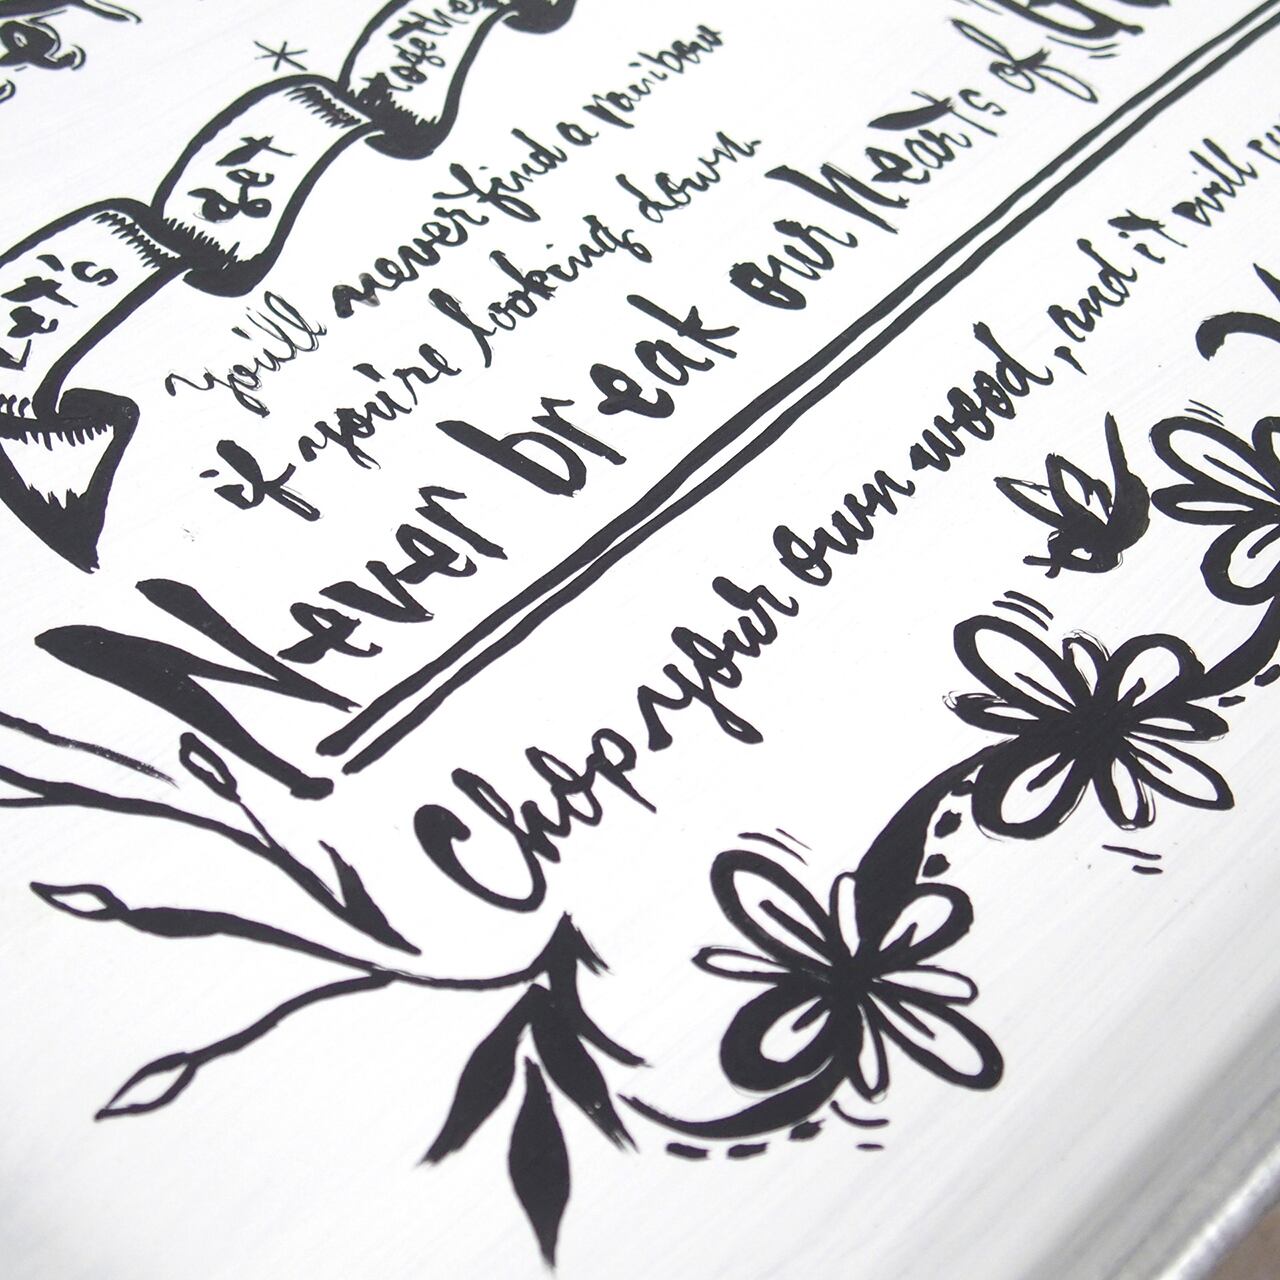 Let's get together
You'll never find a rainbow
if you're looking down.
Never break our hearts of
Chop your own wood, and it will